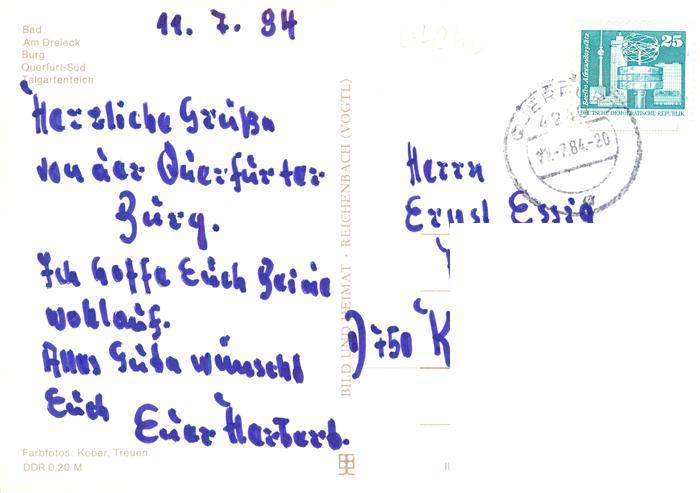 11. 7. 84
Bad
Am Dreieck
Burg
Querfurt-Süd
Talgartenteich
Herzliche Grüße
von der Querfurter
Burg.
Ich hoffe Euch Beine
wohlauf.
Alles Gute wünscht
Euch
Euer Herbert.
Farbfotos: Kober, Treuen
DDR 0,20 M
BILD UND HEIMAT · REICHENBACH (VOGTL)
25
Berlin, Alexanderplatz
DEUTSCHE DEMOKRATISCHE REPUBLIK
QUERFURT
-7.84.-20
Herrn
Ernst Essig